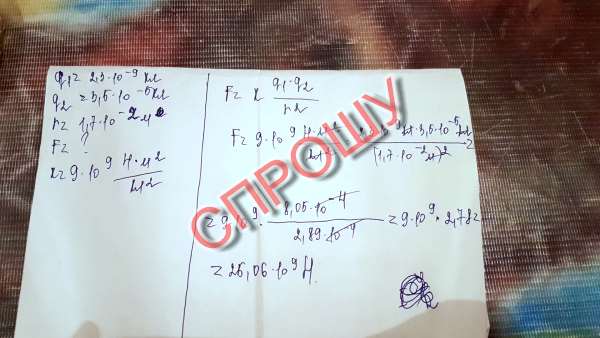 q1 = 2,3·10⁻⁹ Кл
q2 = 3,5·10⁻⁵ Кл
r = 1,7·10⁻² м
F = ?
k = 9·10⁹ Н·м²/Кл²
F = k q1·q2/r²
F = 9·10⁹ Н·м²
3,5·10⁻⁵ Кл
(1,7·10⁻² м)² =
= 9·10⁹ · 8,05·10⁻⁴/2,89·10⁻⁴ = 9·10⁹ · 2,78 =
= 25,06·10⁹ Н
СПРОШУ